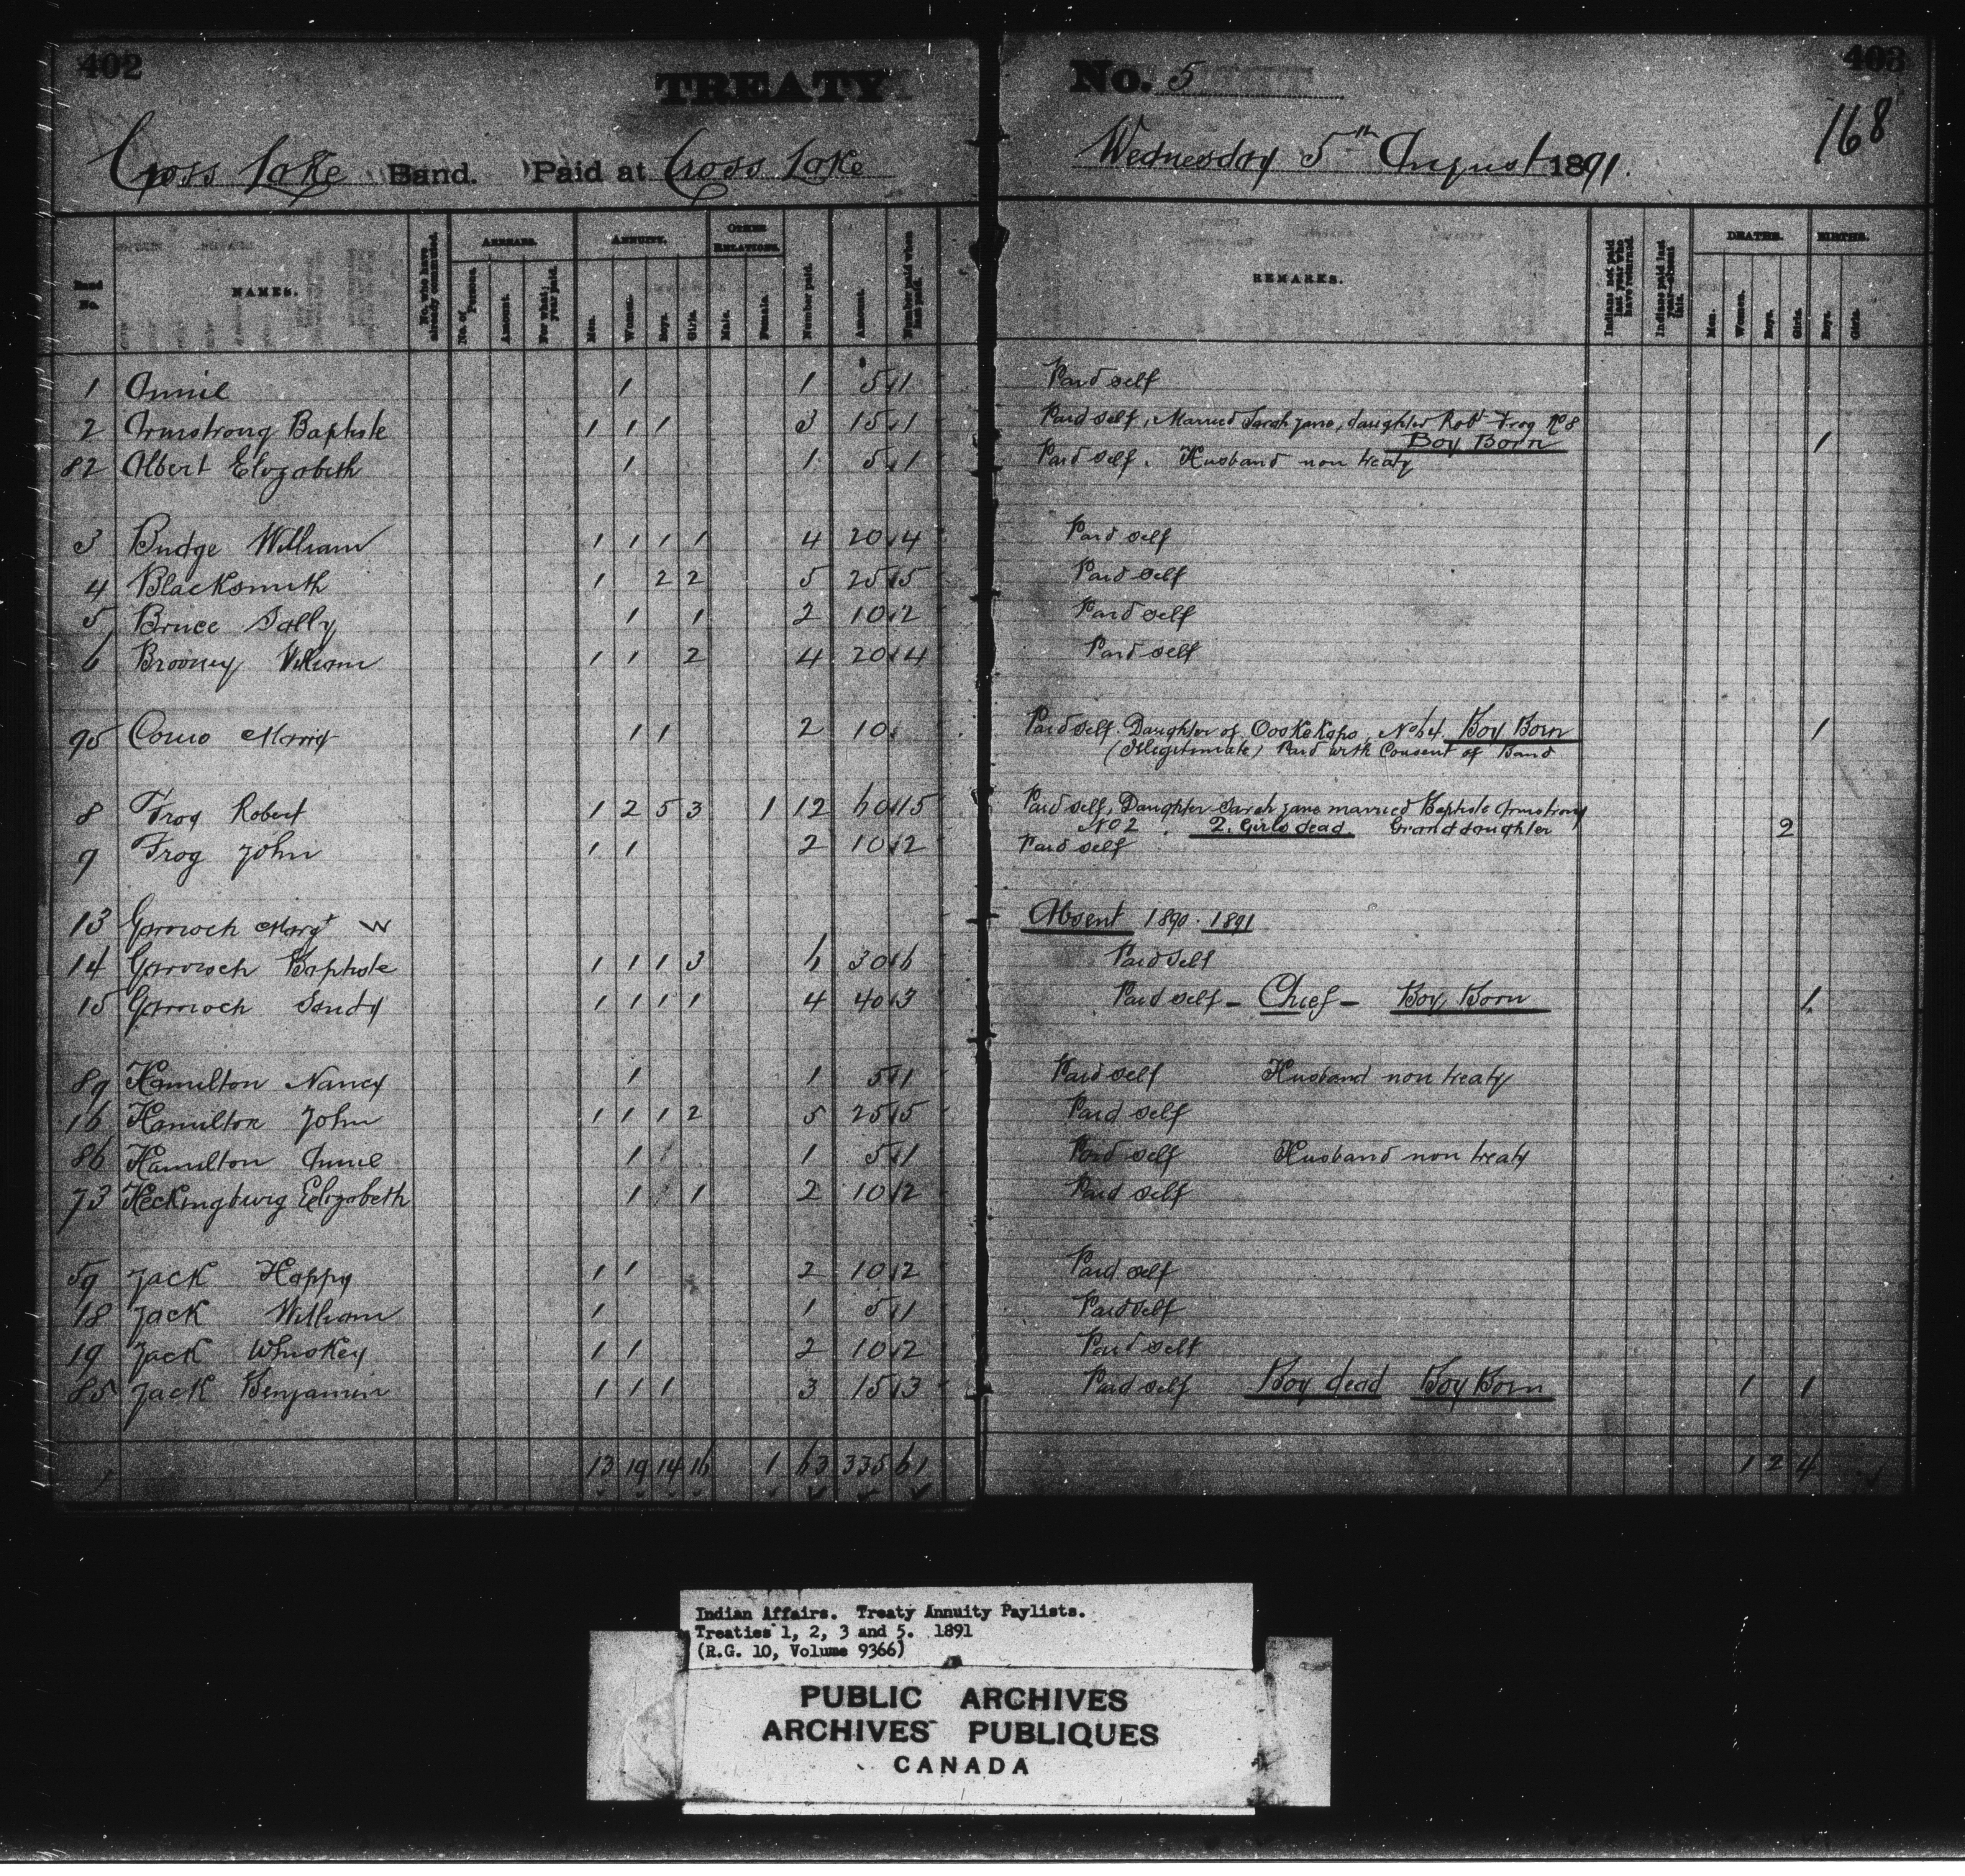 402
TREATY No. 5
403
168
Cross Lake Band. Paid at Cross Lake
Wednesday 5th August 1891.
Band No.
NAMES.
No. who have already commuted.
ARREARS.
No. of Persons.
Amount.
For what year paid.
ANNUITY.
Men.
Women.
Boys.
Girls.
OTHER RELATIONS.
Male.
Female.
Number paid.
Amount.
Number paid when last paid.
REMARKS.
Indians not paid last year who have returned.
Indians paid last year absent this.
DEATHS.
Men.
Women.
Boys.
Girls.
BIRTHS.
Boys.
Girls.
1 Annie 1 1 5 1 Paid self
2 Armstrong Baptiste 1 1 1 3 15 1 Paid self, Married Sarah Jane, daughter Robt Frog No 8
Boy Born 1
82 Albert Elizabeth 1 1 5 1 Paid self. Husband non treaty
3 Budge William 1 1 1 1 4 20 4 Paid self
4 Blacksmith 1 2 2 5 25 5 Paid self
5 Bruce Sally 1 1 2 10 2 Paid self
6 William 1 1 2 4 20 4 Paid self
95 1 1 2 10 Paid self. Daughter of No 64. Boy Born 1
(Illegitimate) Paid with Consent of Band
8 Frog Robert 1 2 5 3 1 12 60 15 Paid self, Daughter Sarah Jane married Baptiste Armstrong
No 2. 2 Girls dead Granddaughter 2
9 Frog John 1 1 2 10 2 Paid self
13 Garrioch Margt W Absent 1890. 1891
14 Garrioch Baptiste 1 1 1 3 6 30 6 Paid self
15 Garrioch Sandy 1 1 1 1 4 40 3 Paid self - Chief - Boy Born 1
89 Hamilton Nancy 1 1 5 1 Paid self Husband non treaty
16 Hamilton John 1 1 1 2 5 25 5 Paid self
86 Hamilton Annie 1 1 5 1 Paid self Husband non treaty
73 Heckingburg Elizabeth 1 1 2 10 2 Paid self
59 Jack Happy 1 1 2 10 2 Paid self
18 Jack William 1 1 5 1 Paid self
19 Jack Whiskey 1 1 2 10 2 Paid self
85 Jack Benjamin 1 1 1 3 15 3 Paid self Boy dead Boy Born 1 1
13 19 14 16 1 63 335 61 1 2 4
Indian Affairs. Treaty Annuity Paylists.
Treaties 1, 2, 3 and 5. 1891
(R.G. 10, Volume 9366)
PUBLIC ARCHIVES
ARCHIVES PUBLIQUES
CANADA